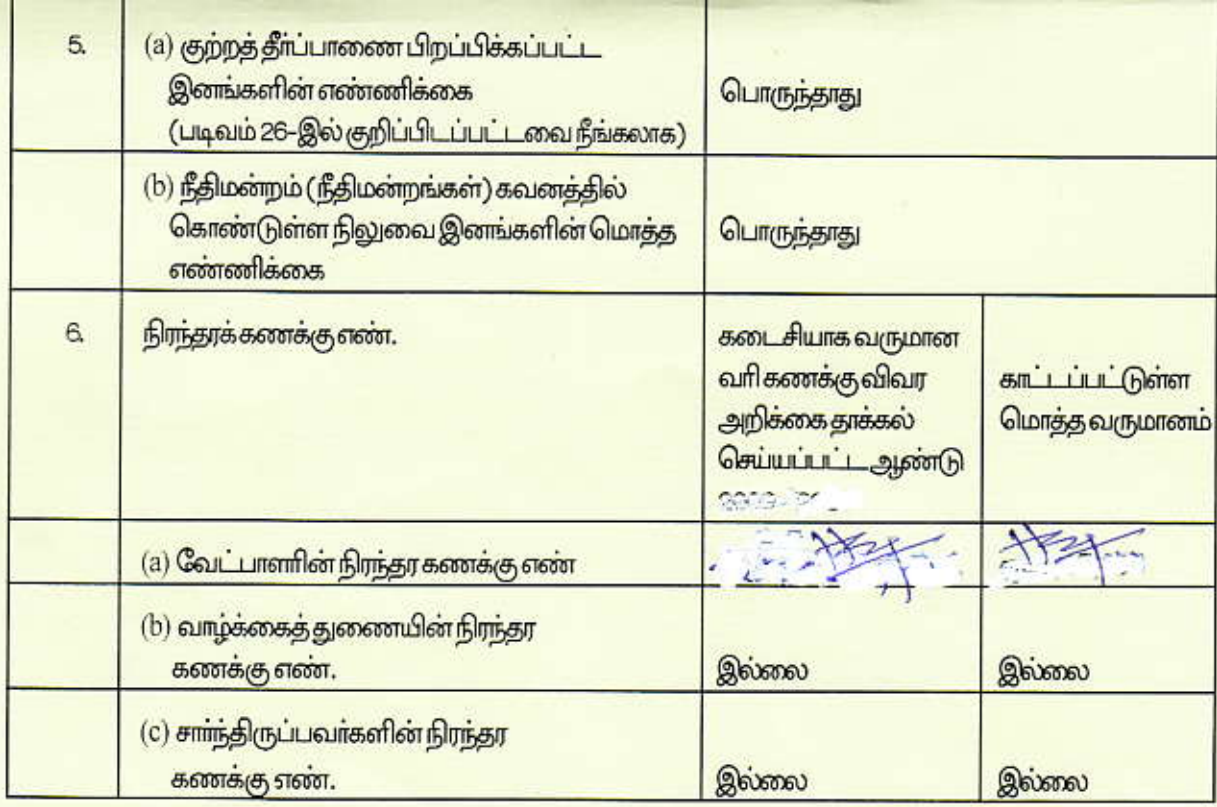 5.
(a) குற்றத் தீர்ப்பாணை பிறப்பிக்கப்பட்ட
இனங்களின் எண்ணிக்கை
(படிவம் 26-இல் குறிப்பிடப்பட்டவை நீங்கலாக)
பொருந்தாது
(b) நீதிமன்றம் (நீதிமன்றங்கள்) கவனத்தில்
கொண்டுள்ள நிலுவை இனங்களின் மொத்த
எண்ணிக்கை
பொருந்தாது
6.
நிரந்தரக் கணக்கு எண்.
கடைசியாக வருமான
வரி கணக்கு விவர
அறிக்கை தாக்கல்
செய்யப்பட்ட ஆண்டு
காட்டப்பட்டுள்ள
மொத்த வருமானம்
(a) வேட்பாளரின் நிரந்தர கணக்கு எண்
(b) வாழ்க்கைத் துணையின் நிரந்தர
கணக்கு எண்.
இல்லை
இல்லை
(c) சார்ந்திருப்பவர்களின் நிரந்தர
கணக்கு எண்.
இல்லை
இல்லை